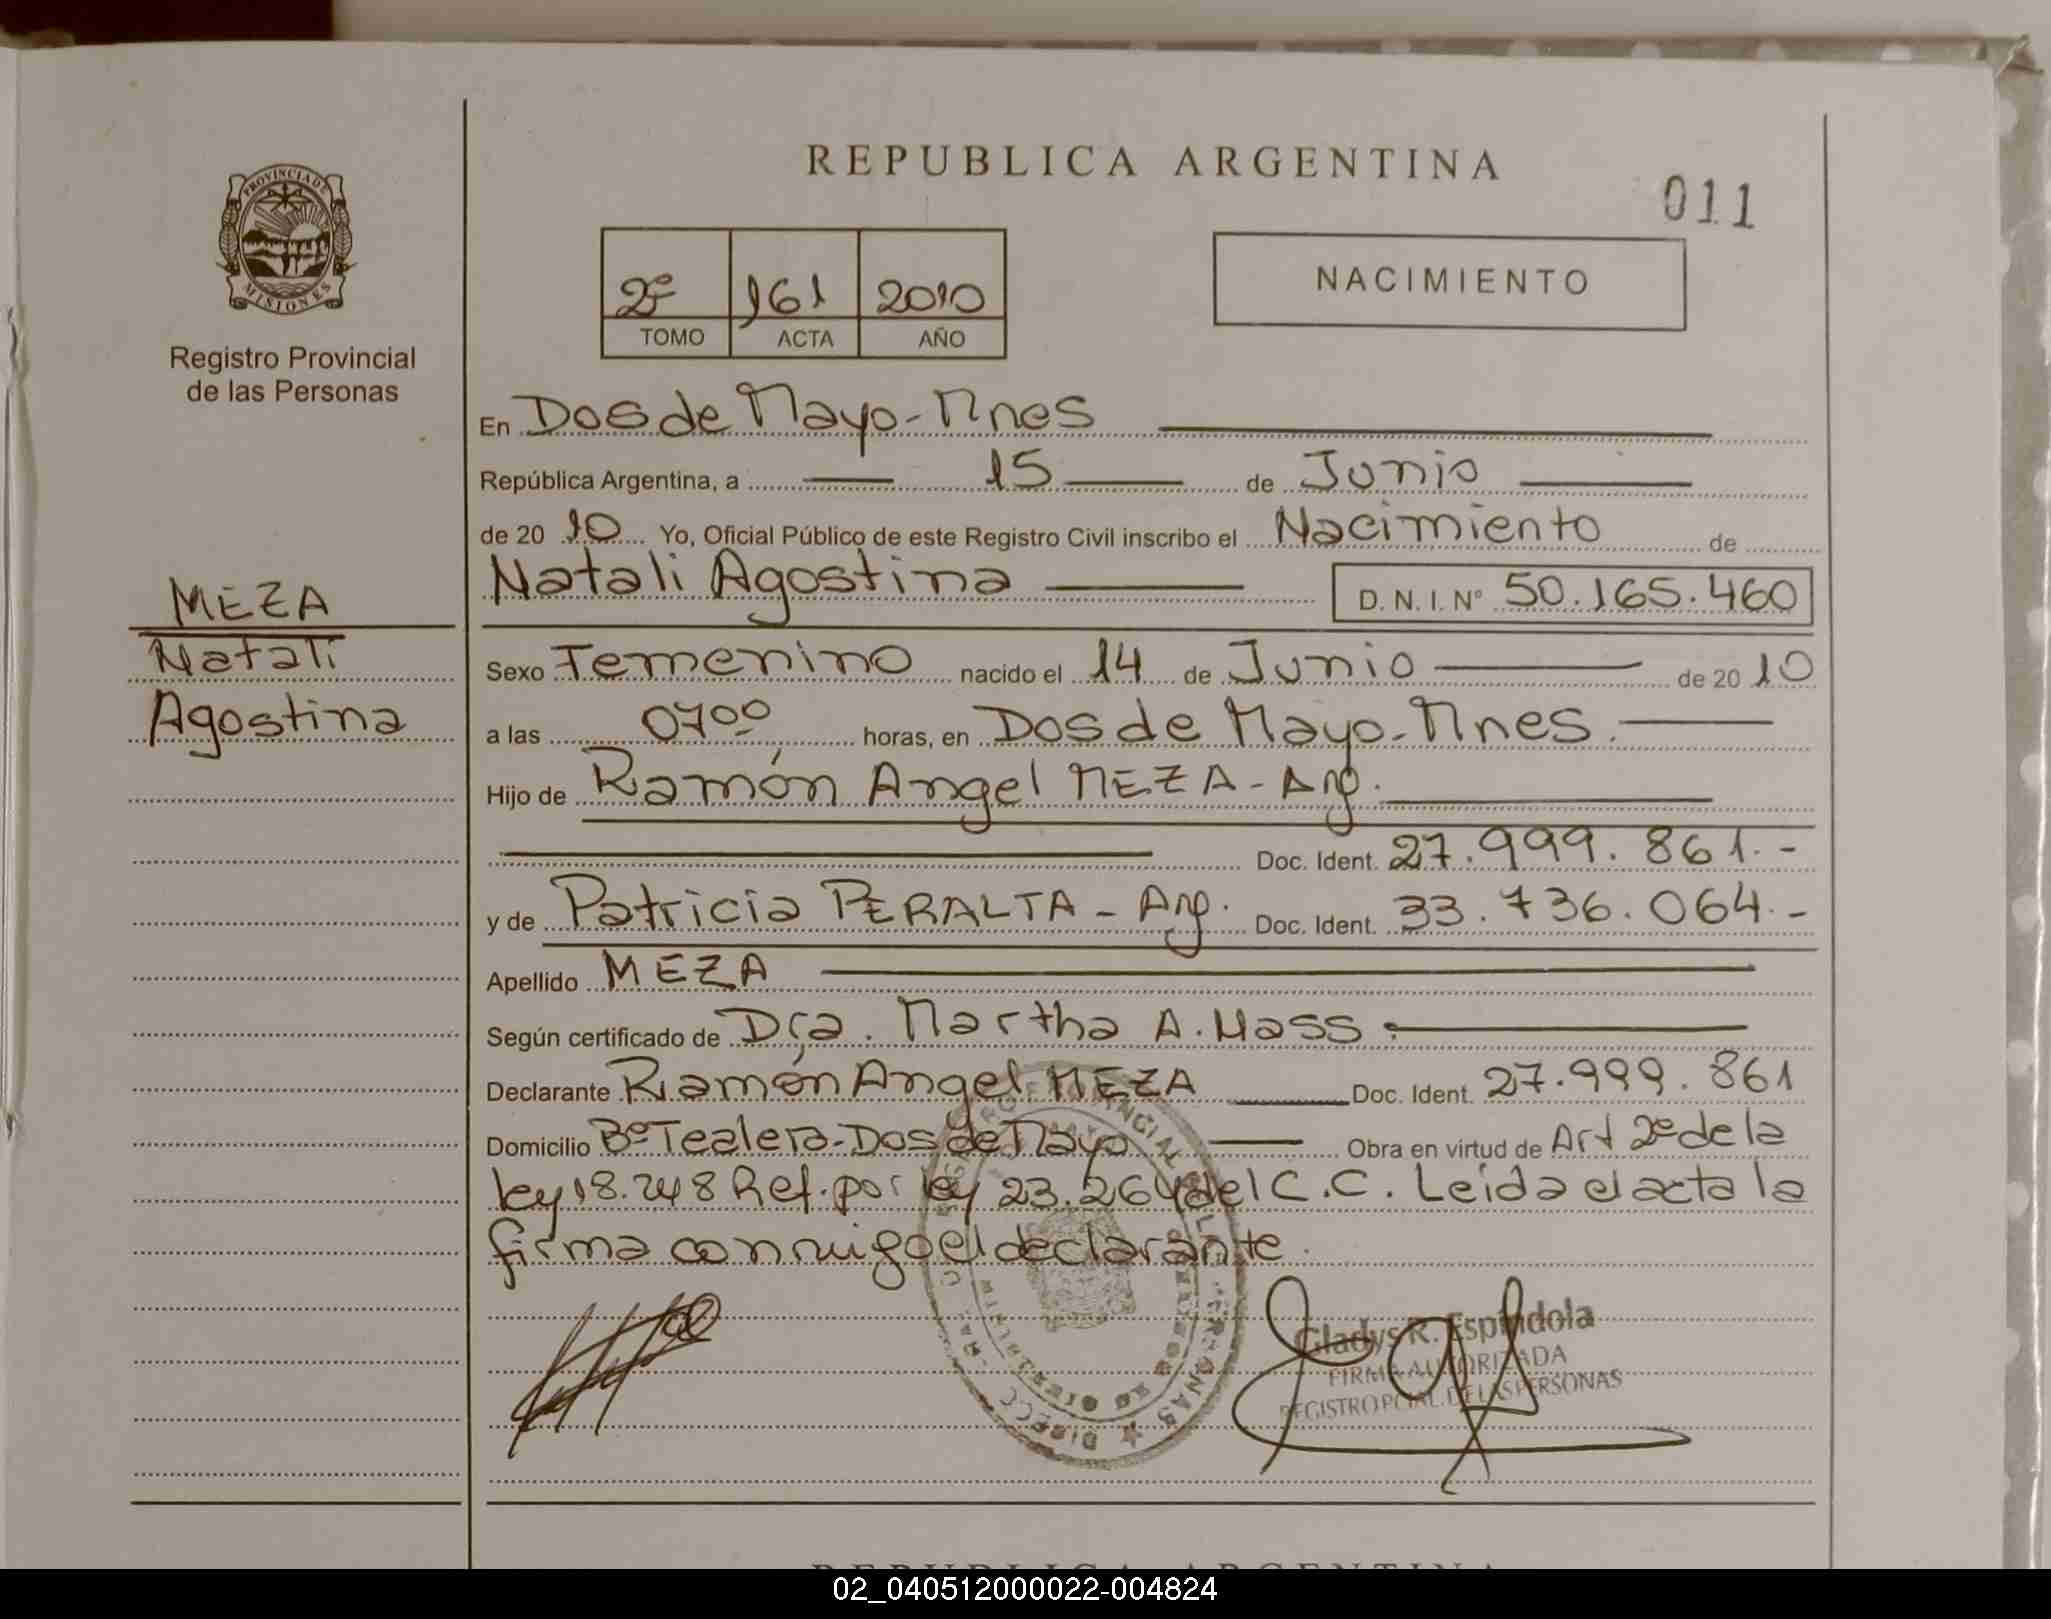 REPUBLICA ARGENTINA
011
PROVINCIA DE
MISIONES
Registro Provincial
de las Personas
2º 161 2010
TOMO ACTA AÑO
NACIMIENTO
En Dos de Mayo - Mnes
República Argentina, a 15 de Junio
de 20 10 Yo, Oficial Público de este Registro Civil inscribo el Nacimiento de
Natali Agostina D. N. I. Nº 50.165.460
MEZA
Natali
Agostina
Sexo Femenino nacido el 14 de Junio de 20 10
a las 07ºº horas, en Dos de Mayo - Mnes.
Hijo de Ramón Angel MEZA - Arg.
Doc. Ident. 27.999.861.-
y de Patricia PERALTA - Arg. Doc. Ident. 33.736.064.-
Apellido MEZA
Según certificado de Dra. Martha A. Hass.
Declarante Ramón Angel MEZA Doc. Ident. 27.999.861
Domicilio Bº Tealera - Dos de Mayo Obra en virtud de Art 2º de la
ley 18.248 Ref. por ley 23.264 del C.C. Leida el acta la
firma conmigo el declarante.
Gladys R. Espíndola
FIRMA AUTORIZADA
REGISTRO PCIAL. DE LAS PERSONAS
REPUBLICA ARGENTINA
02_040512000022-004824